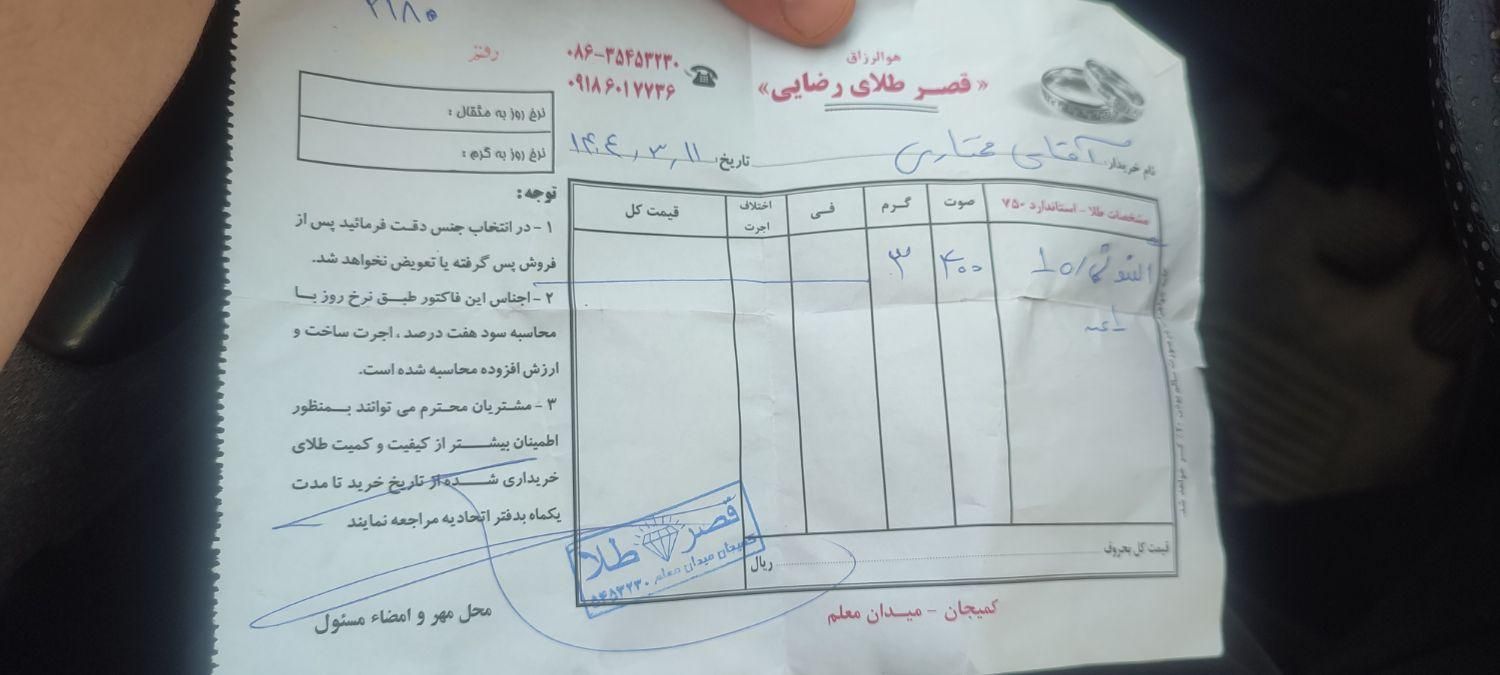 ۲۱۸۰
هوالرزاق
« قصر طلای رضایی»
۰۸۶-۳۵۴۵۳۲۳۰
۰۹۱۸۶۰۱۷۷۳۶
نام خریدار: آقای مختاری تاریخ: ۱۴۰۴/۳/۱۱
نرخ روز به مثقال :
نرخ روز به گرم :
مشخصات طلا - استاندارد ۷۵۰ صوت گرم فی اختلاف اجرت قیمت کل
النگو ۴۰۰ ۳
۱ عدد
قیمت کل بحروف ریال
توجه :
۱ - در انتخاب جنس دقت فرمائید پس از
فروش پس گرفته یا تعویض نخواهد شد.
۲ - اجناس این فاکتور طبق نرخ روز با
محاسبه سود هفت درصد ، اجرت ساخت و
ارزش افزوده محاسبه شده است.
۳ - مشتریان محترم می توانند بمنظور
اطمینان بیشتر از کیفیت و کمیت طلای
خریداری شده از تاریخ خرید تا مدت
یکماه بدفتر اتحادیه مراجعه نمایند
محل مهر و امضاء مسئول
قصر طلا
کمیجان میدان معلم ۳۵۴۵۳۲۳۰
کمیجان - میدان معلم